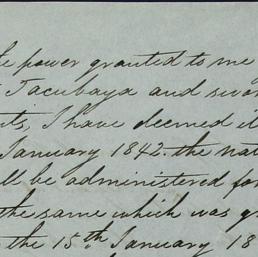 he power granted to me
Tacubaya and swor
nts, I have deemed it
January 1842. the nat
ll be administered for
the same which was gr
the 15th January 18